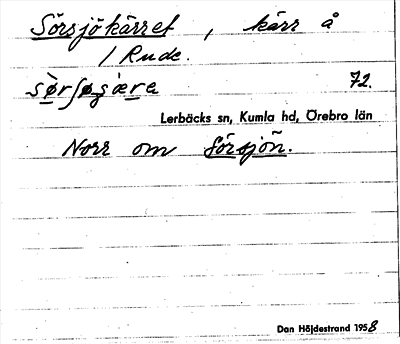 Sörsjökärret, kärr å
1 Rude.
72.
Lerbäcks sn, Kumla hd, Örebro län
Norr om Sörsjön.
Dan Höjdestrand 1958